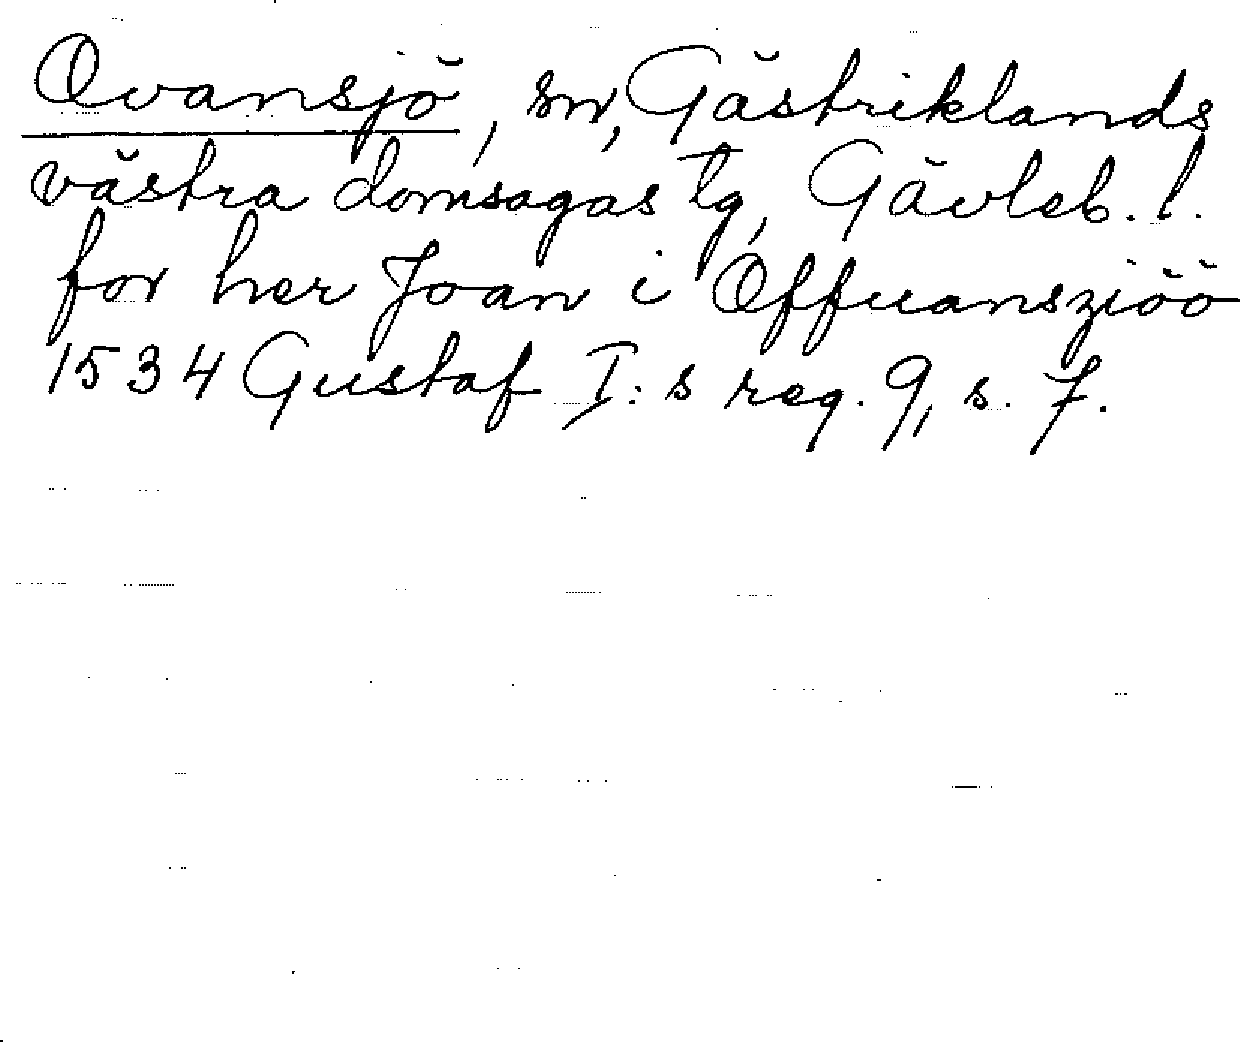 Ovansjö, sn, Gästriklands
västra domsagas tg, Gävleb. l.
for her Joan i Offuansziöö
1534 Gustaf I:s reg. 9, s. 7.